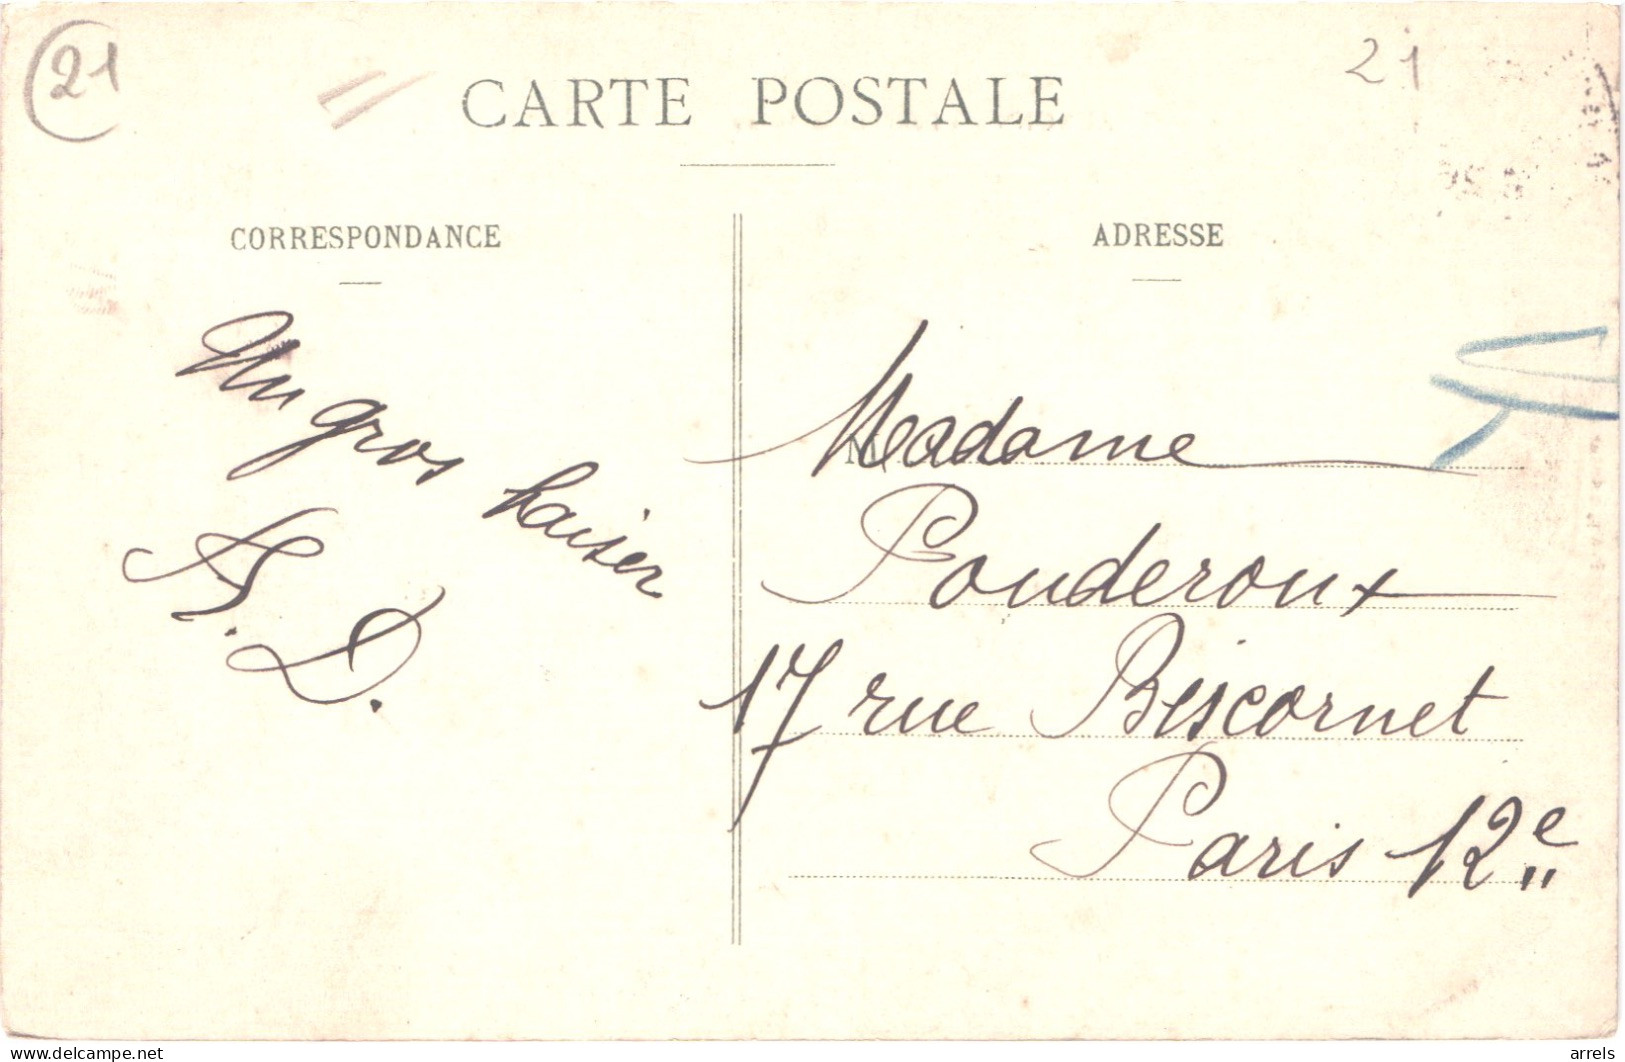 21
21
CARTE POSTALE
CORRESPONDANCE
ADRESSE
Un gros baiser
A. D.
Madame
Pouderoux
17 rue Biscornet
Paris 12e
www.delcampe.net
arrels